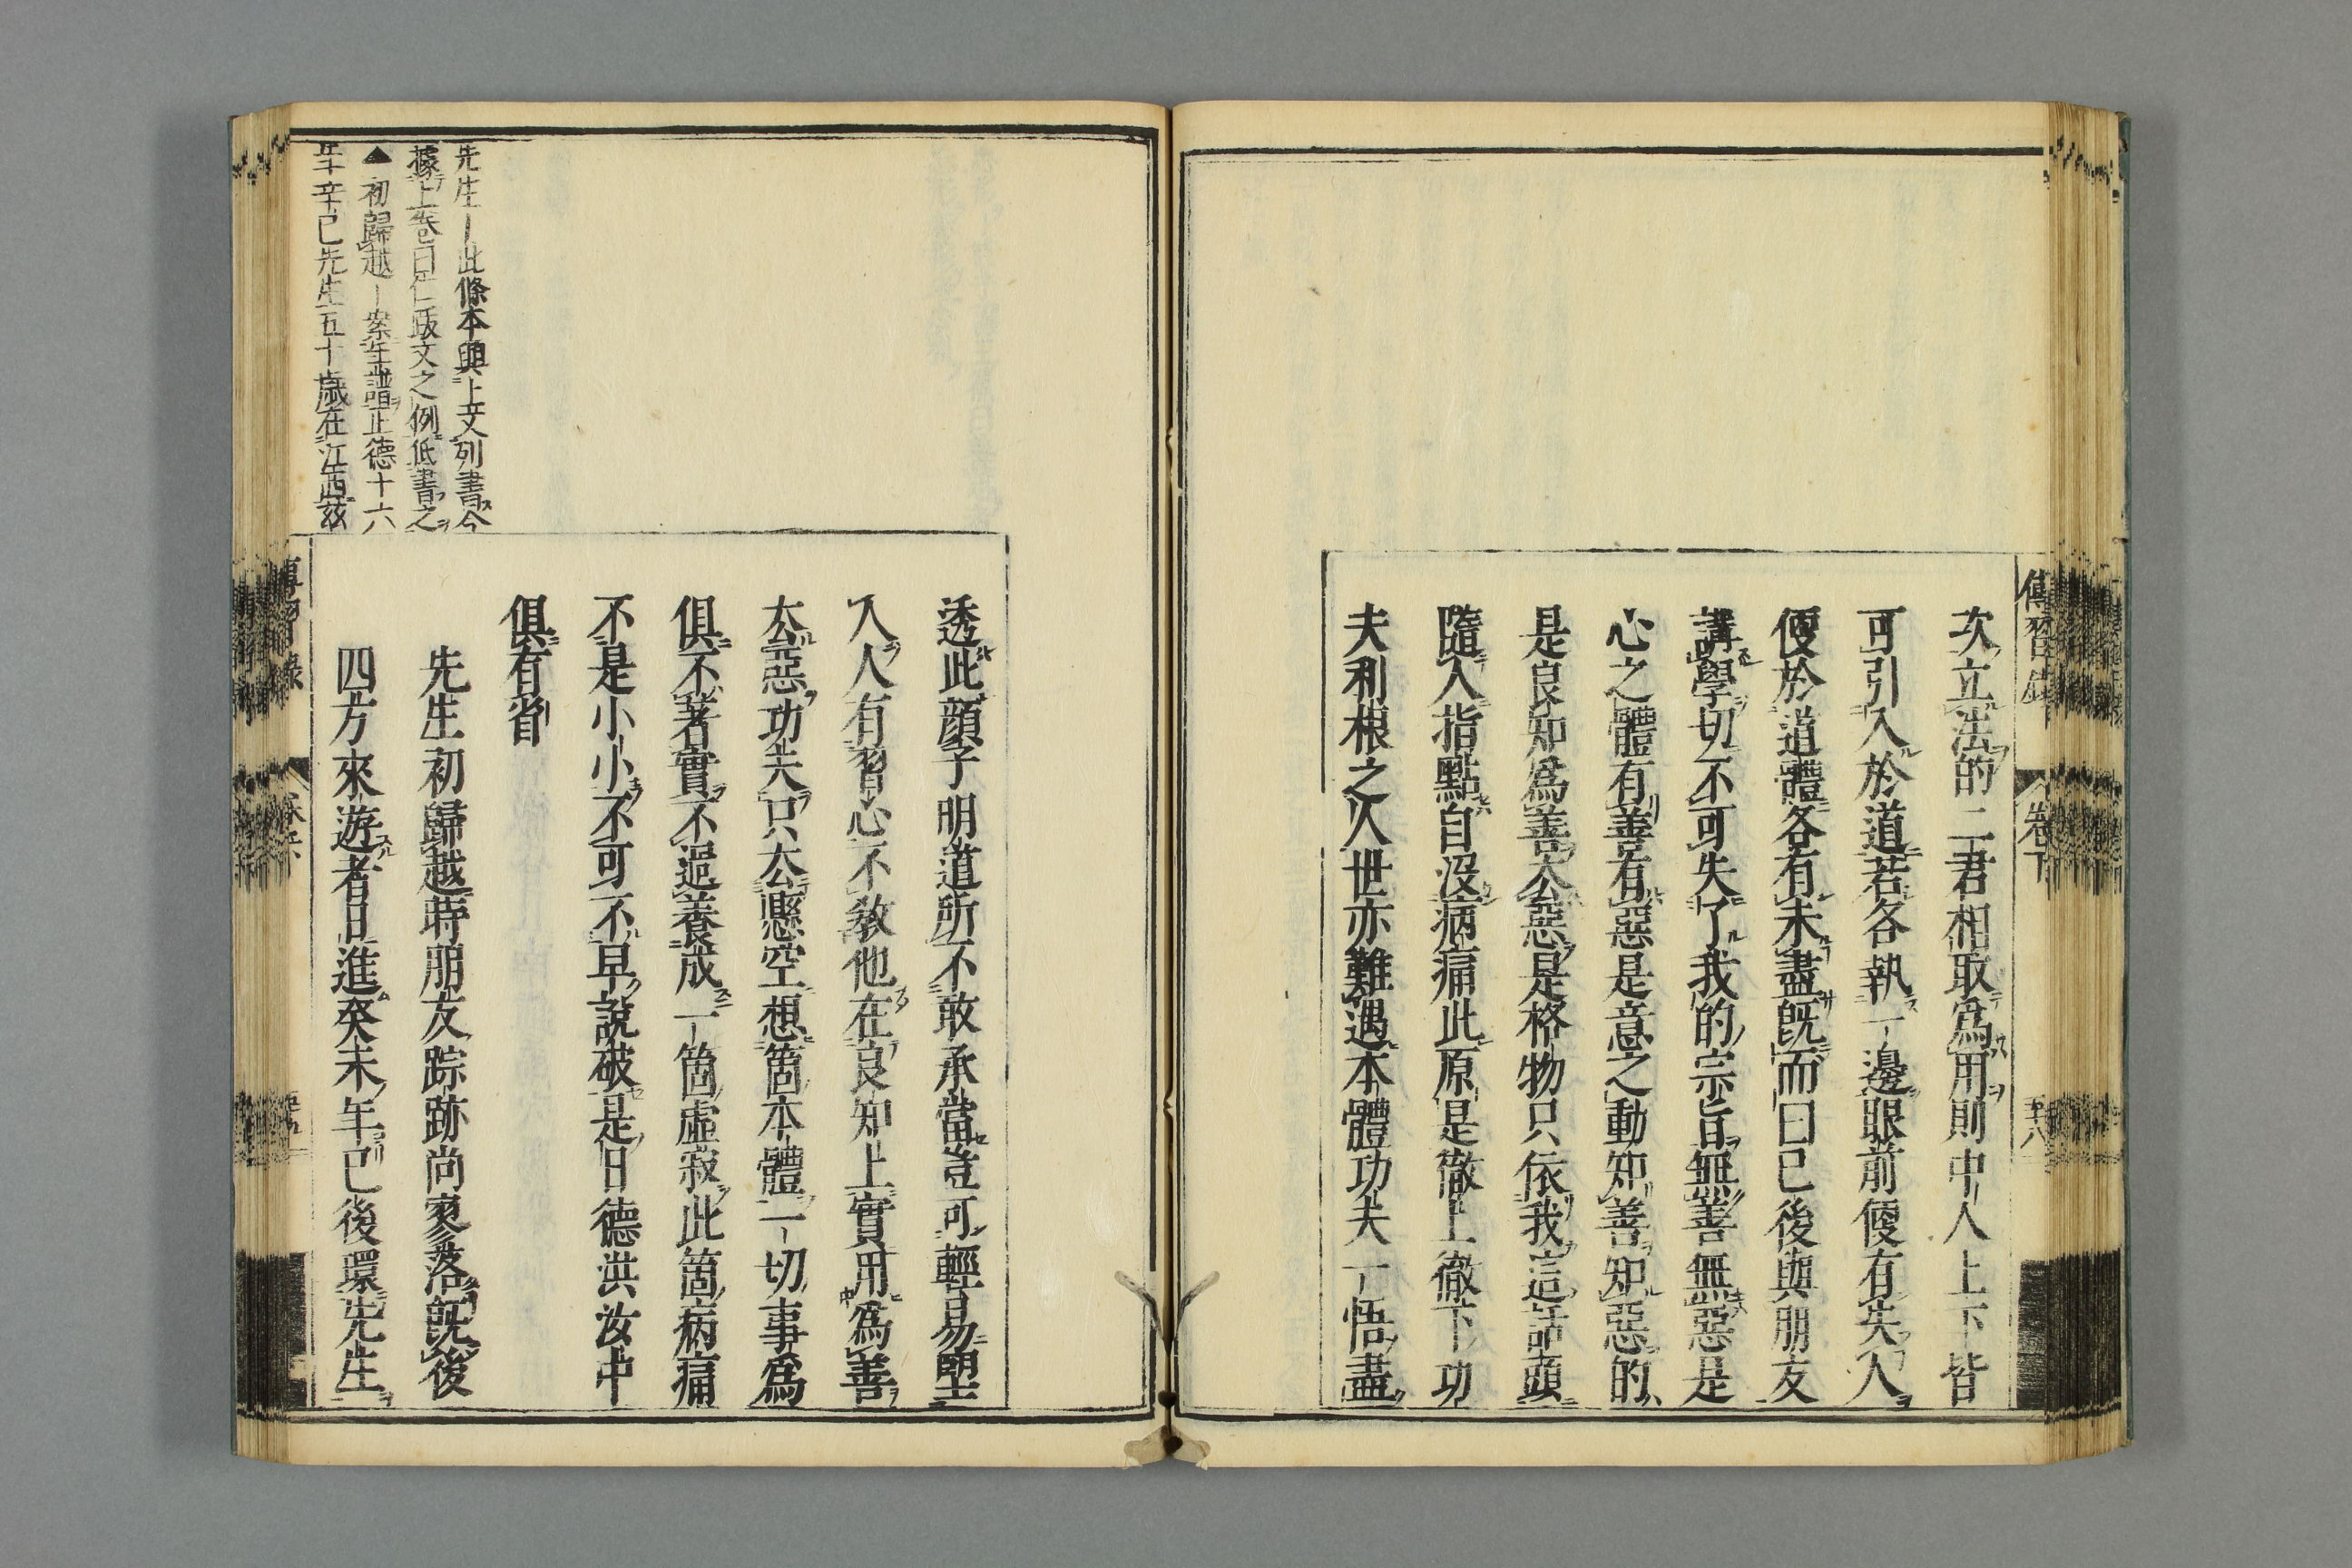 傳習錄
卷下
五十八
次立法的二君相取爲用則中人上下皆
可引入於道若各執一邊眼前便有失人
便於道體各有未盡旣而曰已後與朋友
講學切不可失了我的宗旨無善無惡是
心之體有善有惡是意之動知善知惡的
是良知爲善去惡是格物只依我這話頭
隨人指點自沒病痛此原是徹上徹下功
夫利根之人世亦難遇本體功夫一悟盡
透此顏子明道所不敢承當豈可輕易望
人人有習心不敎他在良知上實用爲善
去惡功夫只去懸空想箇本體一切事爲
俱不著實不過養成一箇虛寂此箇病痛
不是小小不可不早說破是日德洪汝中
俱有省
先生初歸越時朋友踪跡尚寥落旣後
四方來遊者日進癸未年已後環先生
先生―此條本與上文列書今
據上卷曰仁跋文之例低書之
▲初歸越―案年譜正德十六
年辛巳先生五十歲在江西茲